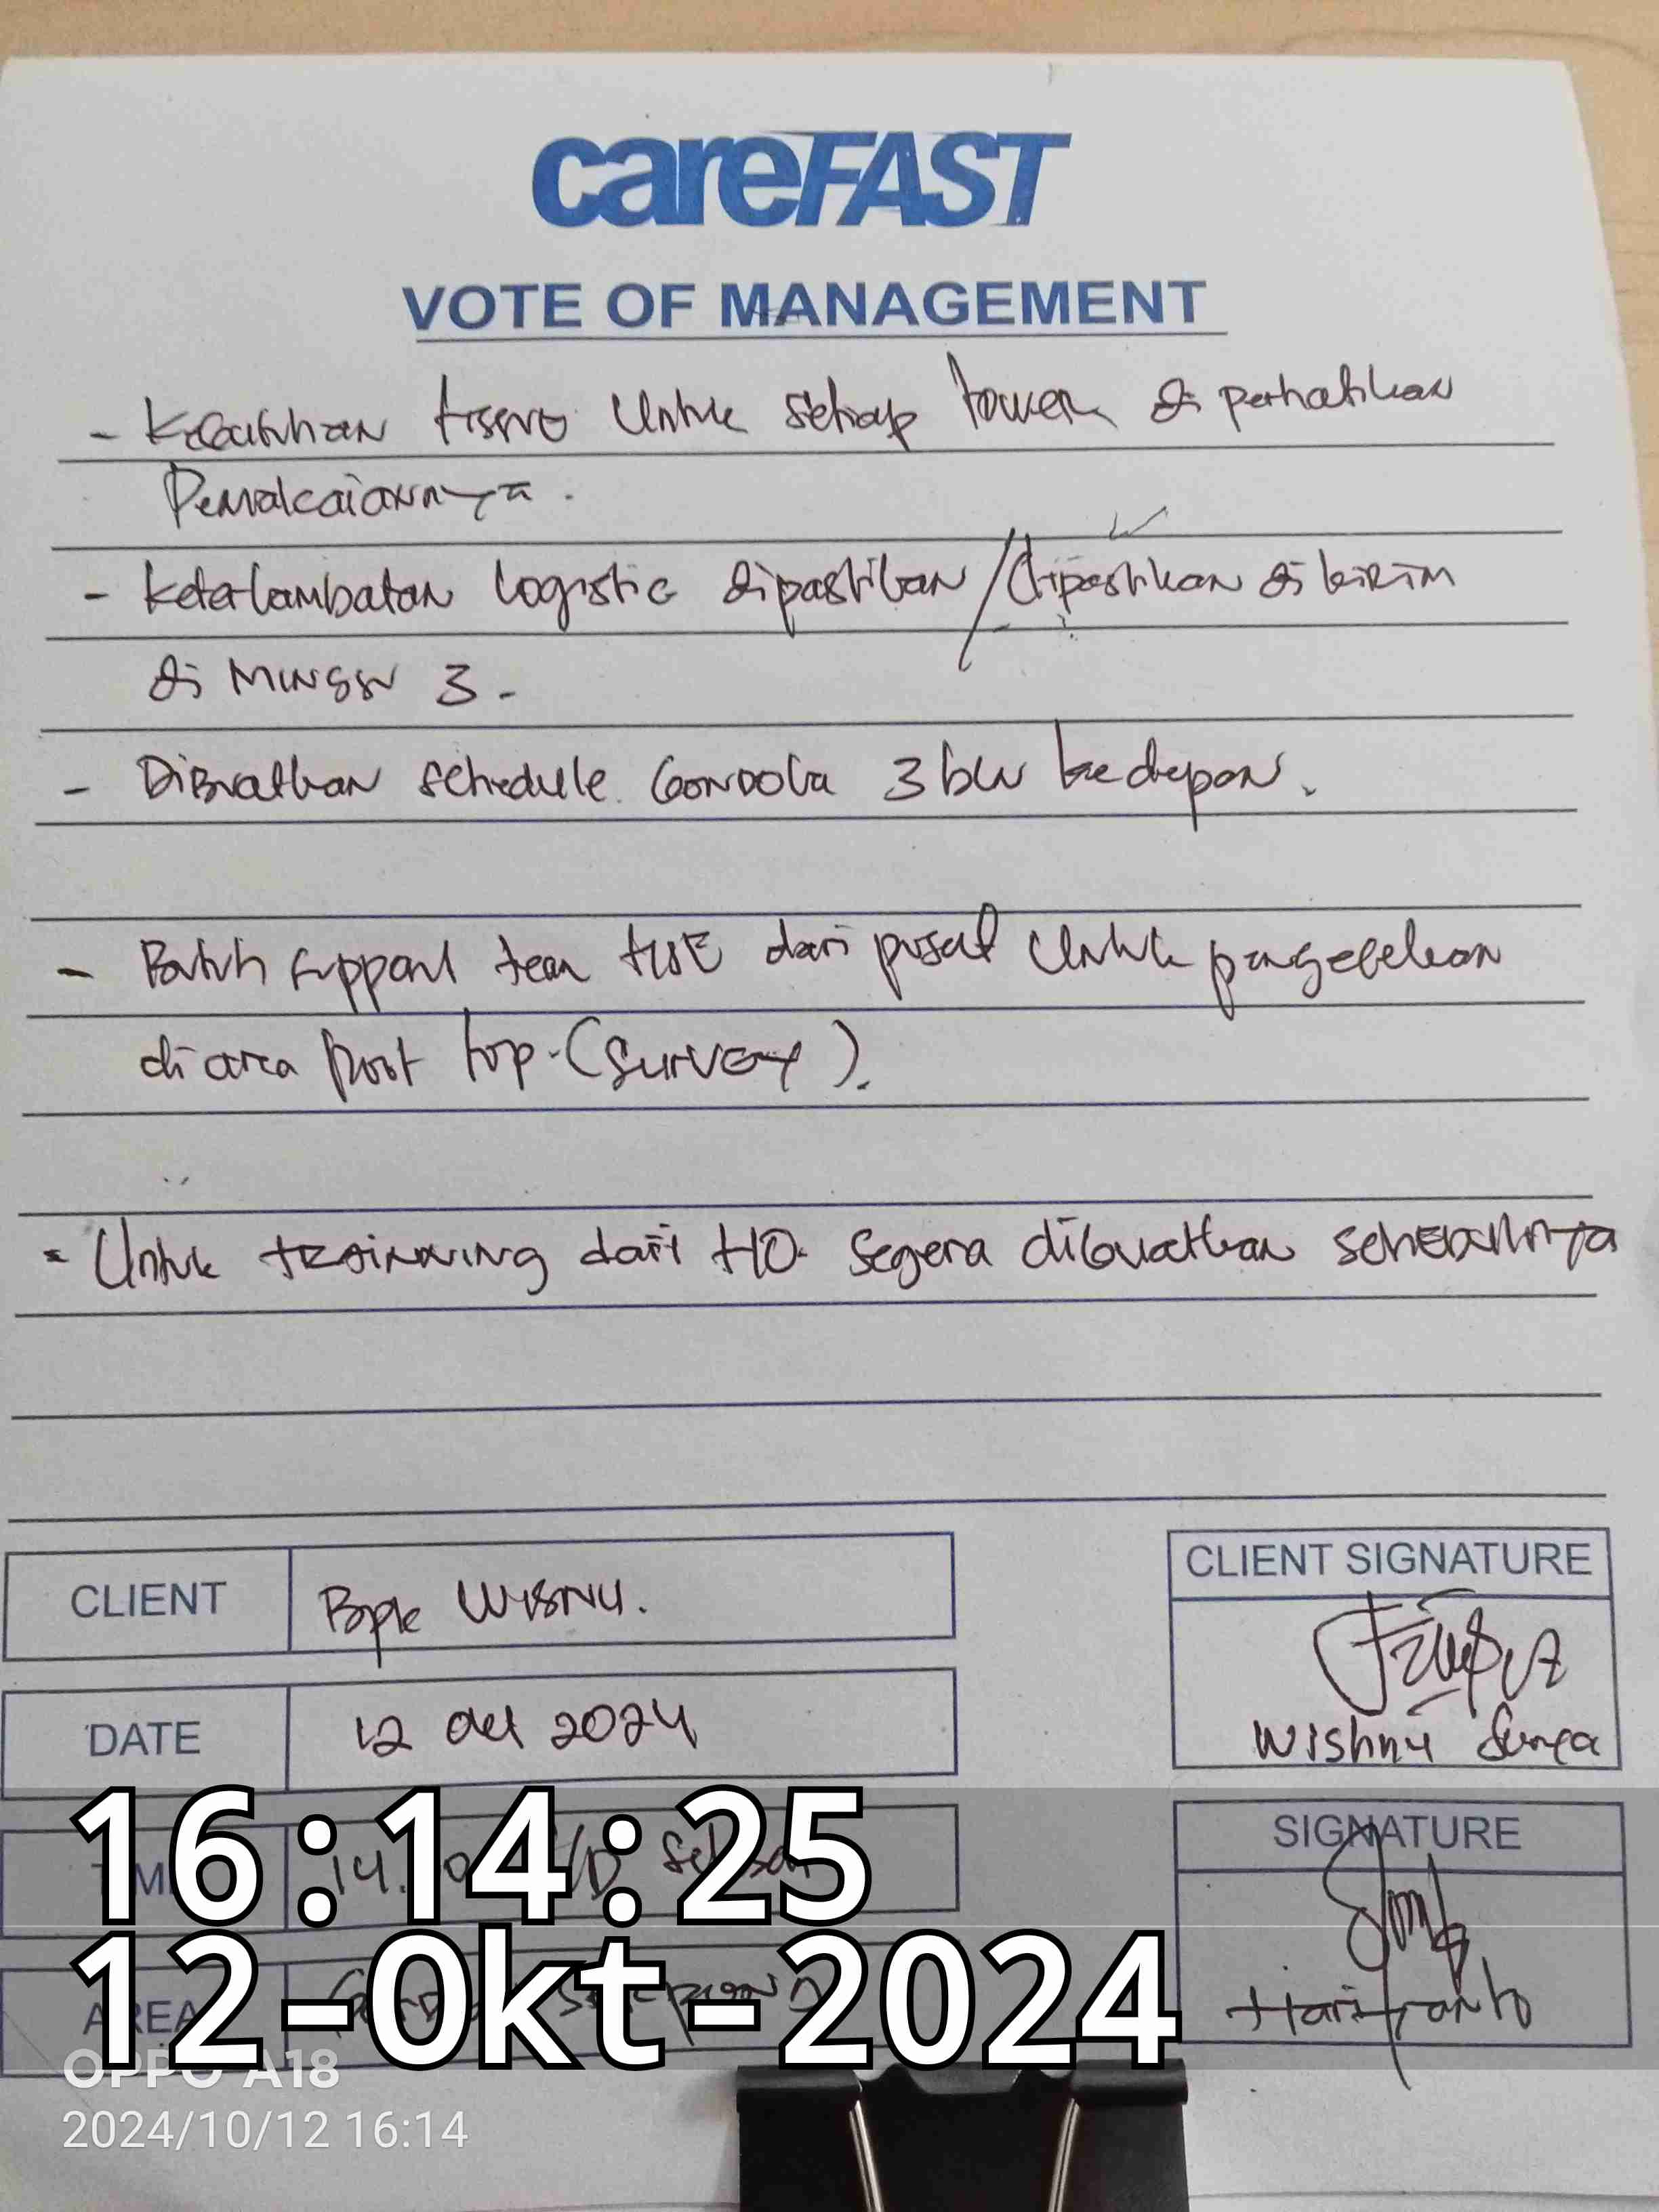 careFAST
VOTE OF MANAGEMENT
- Kebutuhan tissue Untuk setiap tower di perhatikan
Pemakaiannya.
- Keterlambatan Logistic dipastikan / dipastikan di kirim
di Minggu 3.
- Dibuatkan schedule Gondola 3 bln kedepan.
- Butuh support team dari pusat Untuk pengecekan
di area Roof top. (Survey).
- Untuk trainning dari HO. Segera dibuatkan
CLIENT
Bpk Wisnu.
CLIENT SIGNATURE
Wishnu Surya
DATE
12 Okt 2024
SIGNATURE
Haritanto
TIME
14. S/D Selesai
AREA
16:14:25
12-Okt-2024
OPPO A18
2024/10/12 16:14